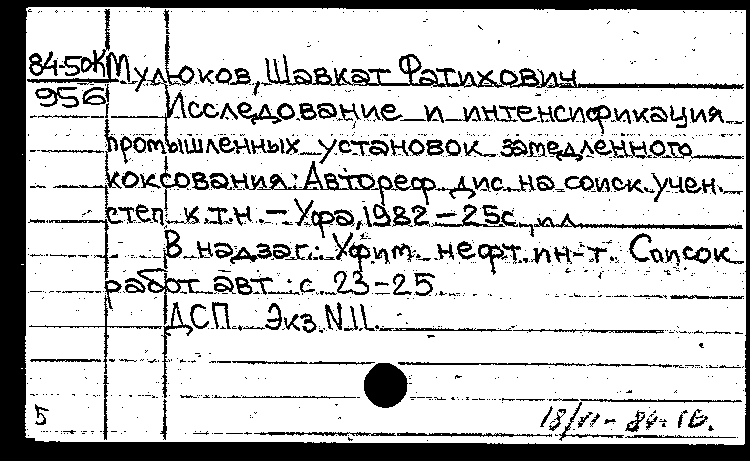 84-5ДК Мулюков, Шавкат Фатихович
956 Исследование и интенсификация
промышленных установок замедленного
коксования: Автореф. дис. на соиск. учен.
степ. к.т.н. – Уфа, 1982 – 25с., ил.
В надзаг.: Уфим. нефт. ин-т. Список
работ авт.: с. 23-25.
ДСП. Экз. N 11.
5